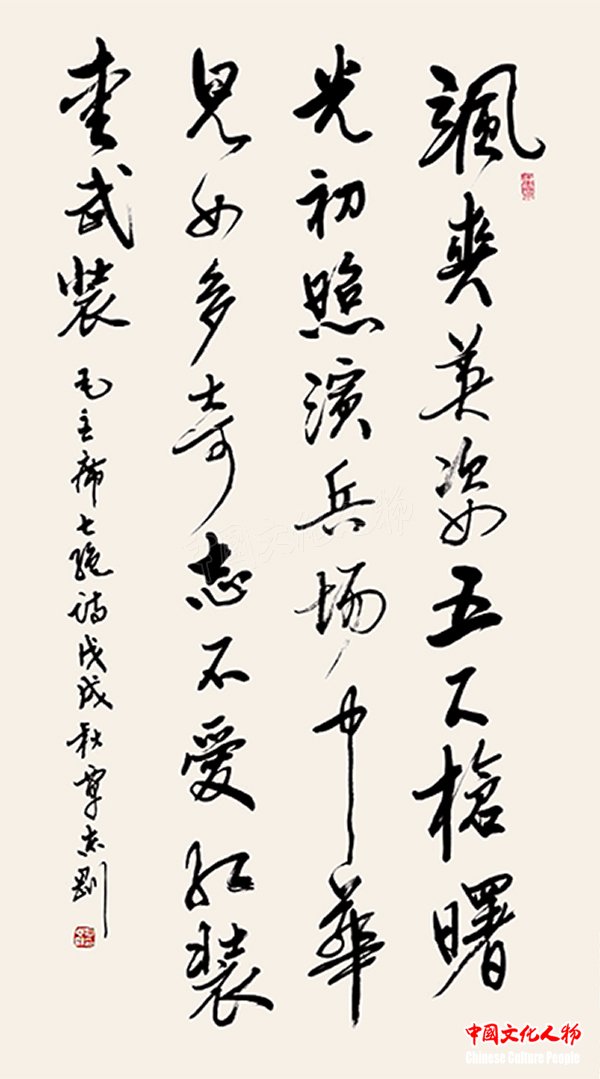 颯爽英姿五尺槍曙
光初照演兵場中華
兒女多奇志不愛紅装
愛武装
毛主席七绝诗戊戌秋覃志剛
中國文化人物
中國文化人物
Chinese Culture People